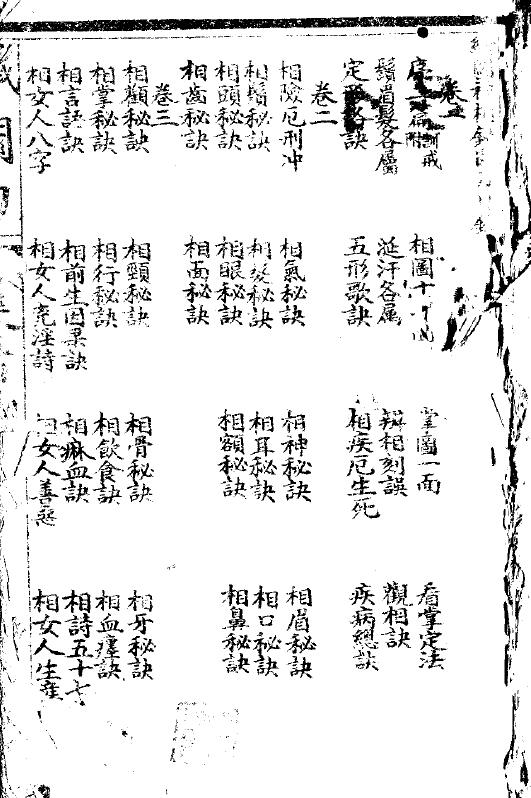 卷一
序 附訓戒 相圖十 掌圖一面 看掌定法
鬚眉髮各屬 涎汗各屬 辨相刻誤 觀相訣
定 訣 五形歌訣 相疾厄生死 疾病總訣
卷二
相險厄刑冲 相氣秘訣 相神秘訣 相眉秘訣
相鬚秘訣 相髮秘訣 相耳秘訣 相口秘訣
相頭秘訣 相眼秘訣 相額秘訣 相鼻秘訣
相齒秘訣 相面秘訣
卷三
相顴秘訣 相頸秘訣 相骨秘訣 相牙秘訣
相掌秘訣 相行秘訣 相飲食訣 相血瘻訣
相言語訣 相前生因果訣 相痳血訣 相詩五十七
相女人八字 相女人克淫詩 相女人善惡 相女人生產